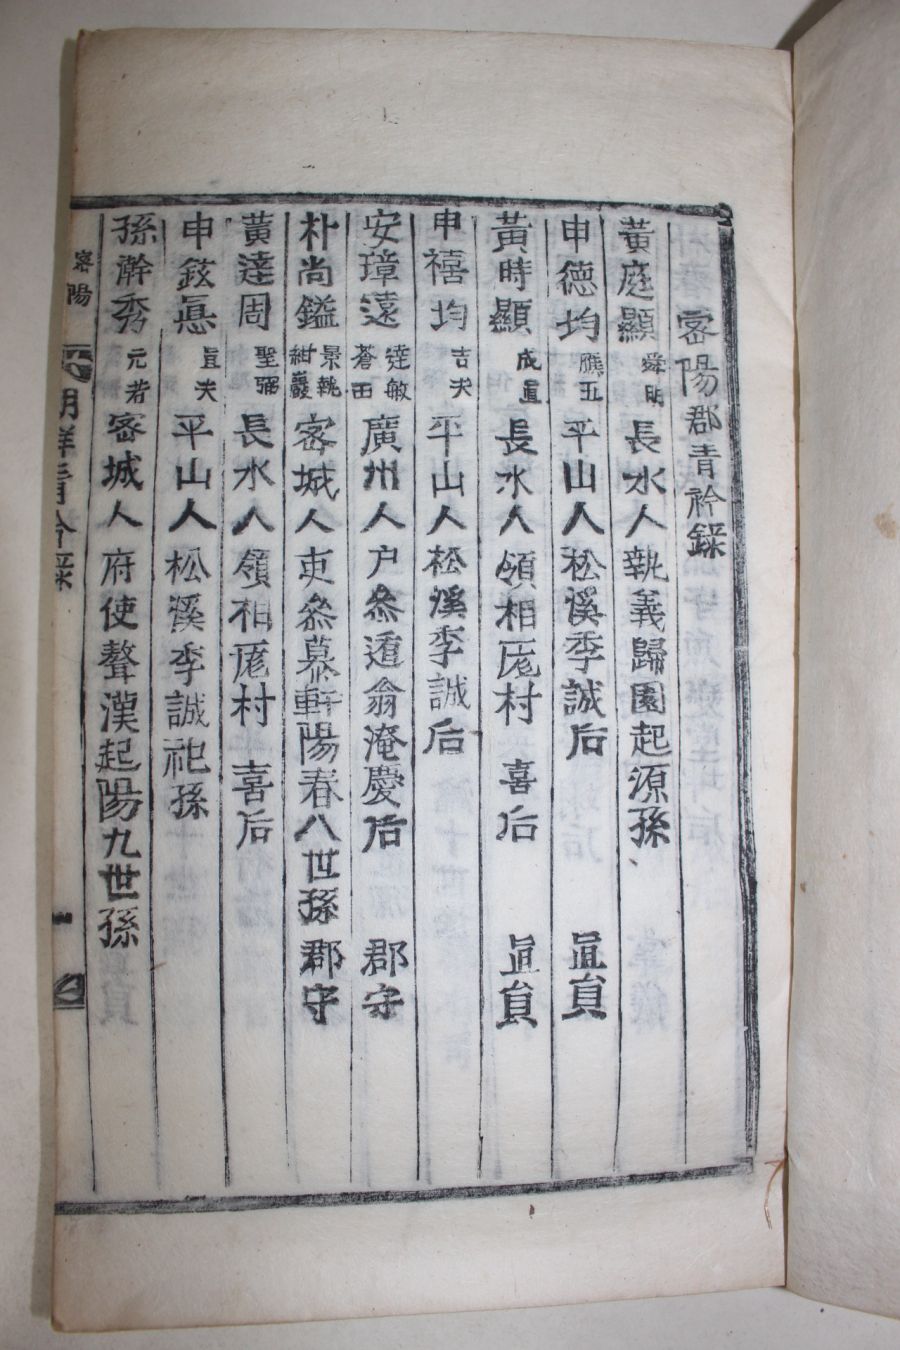 密陽郡青衿錄
黃庭顯 舜明 長水人 執義歸園起源孫
申德均 應五 平山人 松溪季誠后 直員
黃時顯 成直 長水人 領相厖村喜后 直員
申禧均 吉夫 平山人 松溪季誠后
安璋遠 達敏 蒼田 廣州人 户叅遁翁淹慶后 郡守
朴尚鎰 景執 紺巖 密城人 吏叅慕軒陽春八世孫 郡守
黃達周 聖弼 長水人 領相厖村喜后
申鉉愚 直夫 平山人 松溪季誠祀孫
孫澣秀 元若 密城人 府使聱漢起陽九世孫
密陽
青衿錄
一